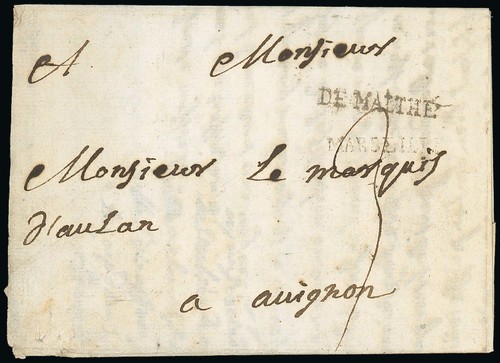 A Monsieur
DE MALTHE
MARSEILLE
Monsieur Le marquis
d'aulan
a avignon